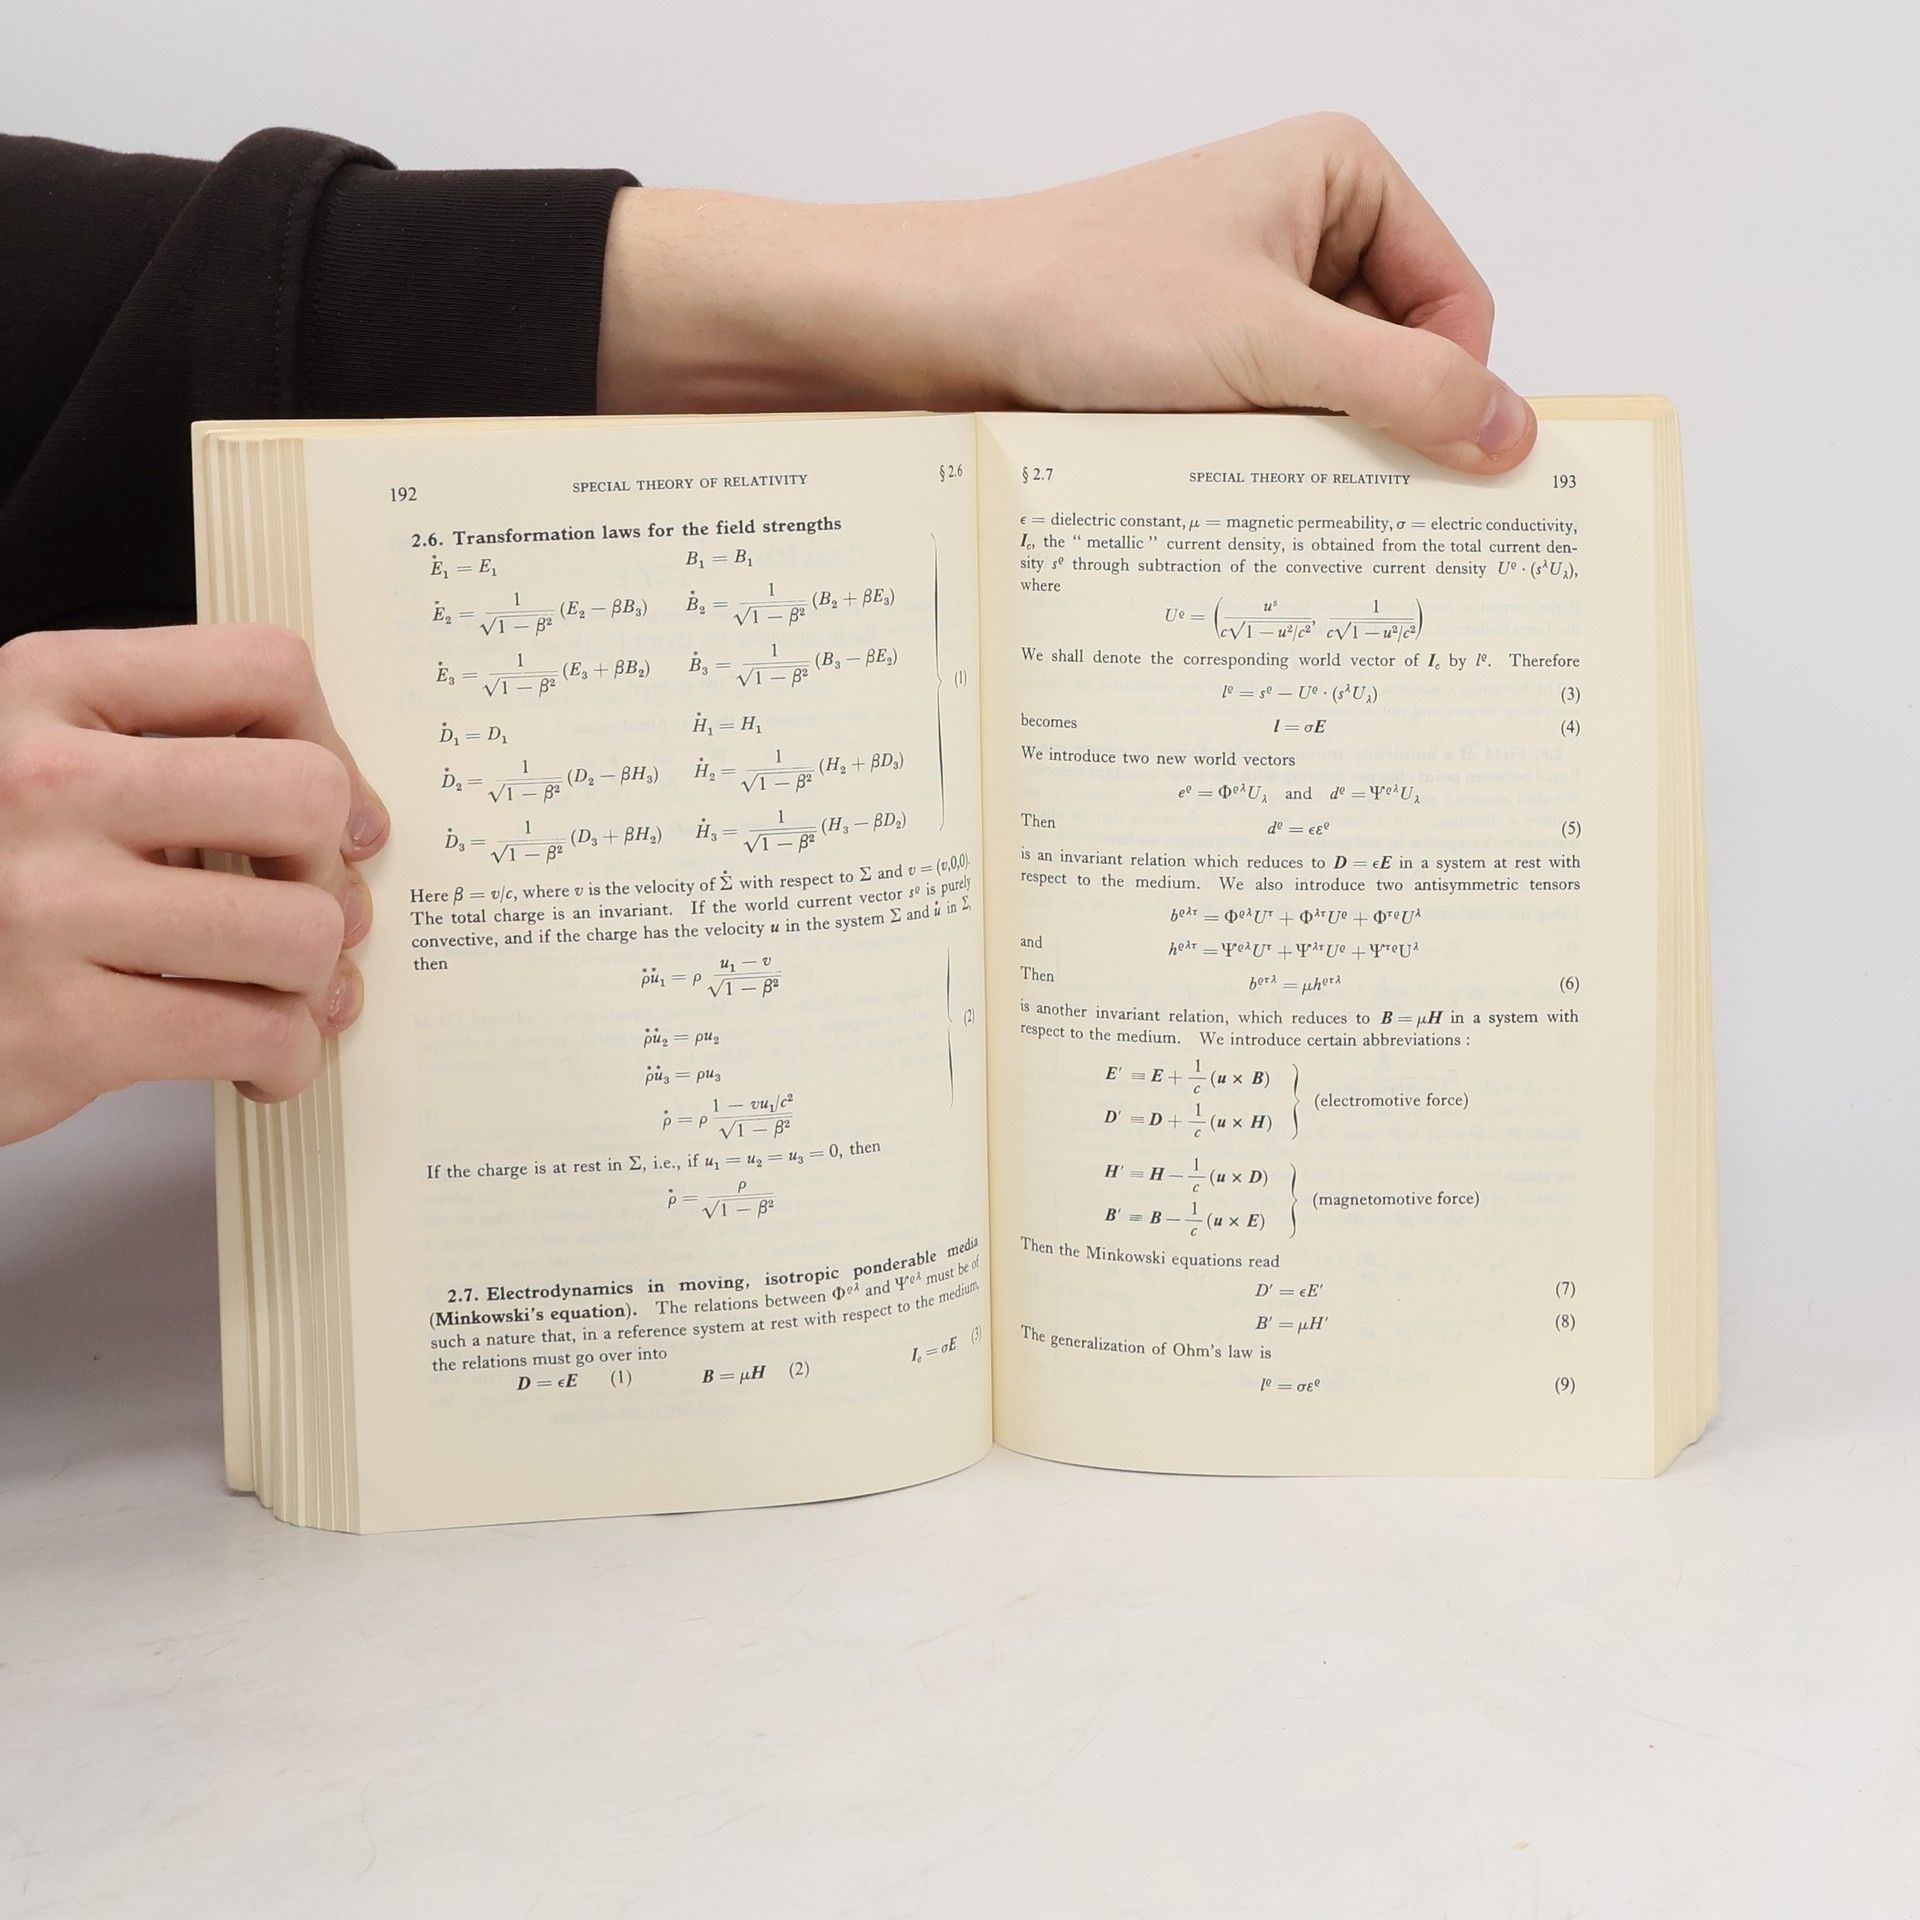 192 SPECIAL THEORY OF RELATIVITY § 2.6
2.6. Transformation laws for the field strengths
E̊₁ = E₁ B₁ = B₁
E̊₂ = 1/√(1 − β²) (E₂ − βB₃) B̊₂ = 1/√(1 − β²) (B₂ + βE₃)
E̊₃ = 1/√(1 − β²) (E₃ + βB₂) B̊₃ = 1/√(1 − β²) (B₃ − βE₂)
(1)
D̊₁ = D₁ H̊₁ = H₁
D̊₂ = 1/√(1 − β²) (D₂ − βH₃) H̊₂ = 1/√(1 − β²) (H₂ + βD₃)
D̊₃ = 1/√(1 − β²) (D₃ + βH₂) H̊₃ = 1/√(1 − β²) (H₃ − βD₂)
Here β = v/c, where v is the velocity of Σ̊ with respect to Σ and v = (v,0,0).
The total charge is an invariant. If the world current vector s^ϱ is purely
convective, and if the charge has the velocity u in the system Σ and ů in Σ,
then
ρ̊ů₁ = ρ (u₁ − v)/√(1 − β²)
ρ̊ů₂ = ρu₂
(2)
ρ̊ů₃ = ρu₃
ρ̊ = ρ (1 − vu₁/c²)/√(1 − β²)
If the charge is at rest in Σ, i.e., if u₁ = u₂ = u₃ = 0, then
ρ̊ = ρ/√(1 − β²)
2.7. Electrodynamics in moving, isotropic ponderable media
(Minkowski's equation). The relations between Φ^ϱλ and Ψ^ϱλ must be of
such a nature that, in a reference system at rest with respect to the medium,
the relations must go over into
D = ϵE (1) B = μH (2) I_c = σE (3)
§ 2.7 SPECIAL THEORY OF RELATIVITY 193
ϵ = dielectric constant, μ = magnetic permeability, σ = electric conductivity,
I_c, the “ metallic ” current density, is obtained from the total current den-
sity s^ϱ through subtraction of the convective current density U^ϱ · (s^λU_λ),
where
U^ϱ = (u^s/(c√(1 − u²/c²)), 1/(c√(1 − u²/c²)))
We shall denote the corresponding world vector of I_c by l^ϱ. Therefore
l^ϱ = s^ϱ − U^ϱ · (s^λU_λ) (3)
becomes l = σE (4)
We introduce two new world vectors
e^ϱ = Φ^ϱλU_λ and d^ϱ = Ψ^ϱλU_λ
Then d^ϱ = ϵε^ϱ (5)
is an invariant relation which reduces to D = ϵE in a system at rest with
respect to the medium. We also introduce two antisymmetric tensors
b^ϱλτ = Φ^ϱλU^τ + Φ^λτU^ϱ + Φ^τϱU^λ
and h^ϱλτ = Ψ^ϱλU^τ + Ψ^λτU^ϱ + Ψ^τϱU^λ
Then b^ϱτλ = μh^ϱτλ (6)
is another invariant relation, which reduces to B = μH in a system with
respect to the medium. We introduce certain abbreviations :
E′ ≡ E + 1/c (u × B)
(electromotive force)
D′ ≡ D + 1/c (u × H)
H′ ≡ H − 1/c (u × D)
(magnetomotive force)
B′ ≡ B − 1/c (u × E)
Then the Minkowski equations read
D′ = ϵE′ (7)
B′ = μH′ (8)
The generalization of Ohm's law is
l^ϱ = σε^ϱ (9)